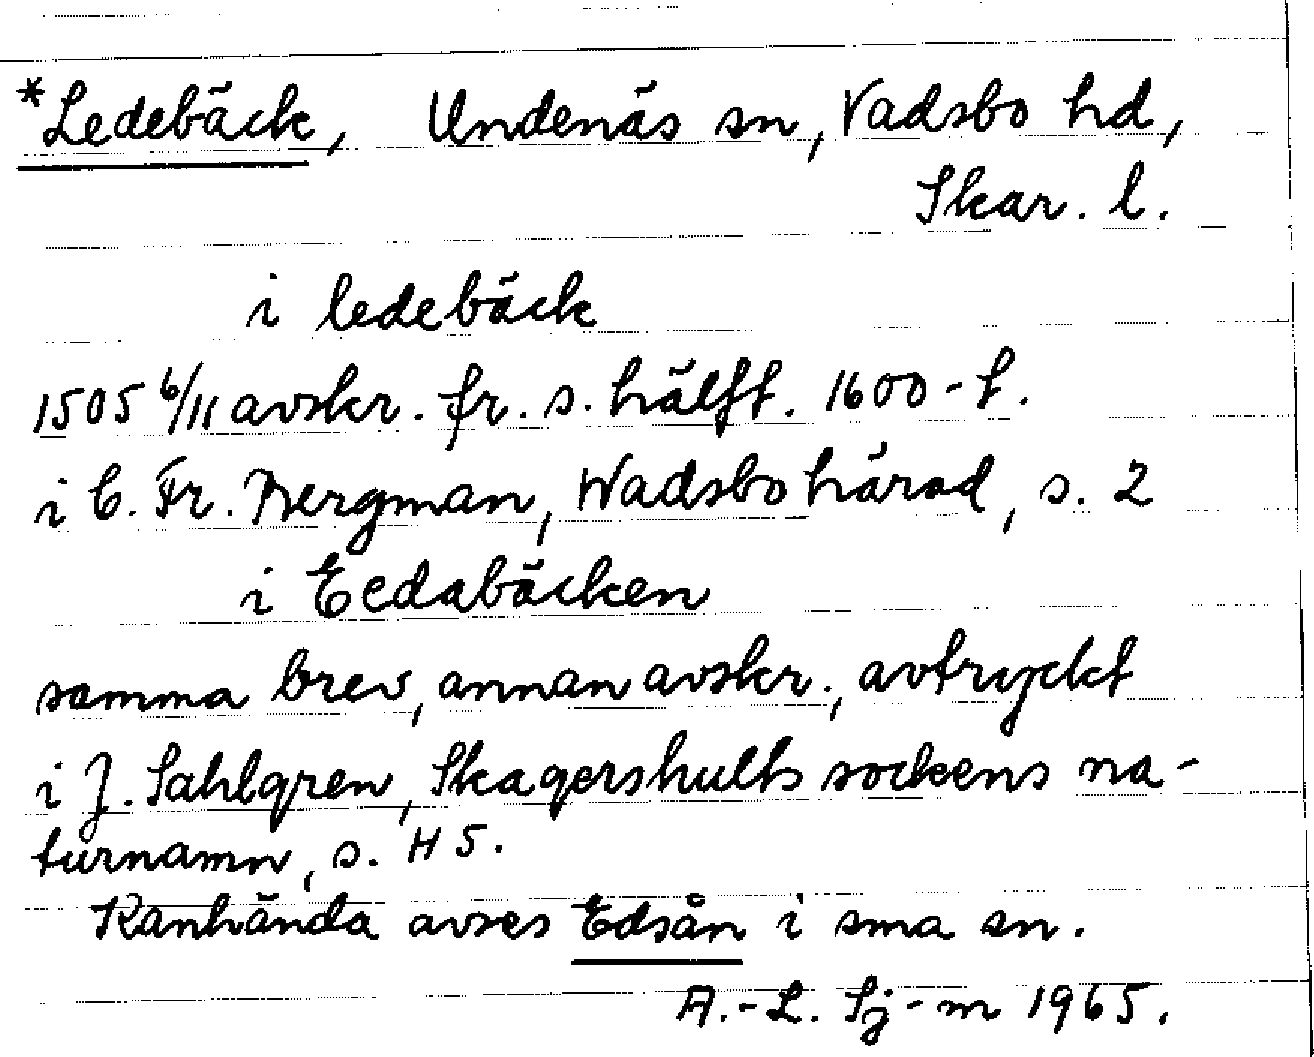 *Ledebäck, Undenäs sn, Vadsbo hd,
Skar. l.
i ledebäck
1505 6/11 avskr. fr. s. hälft. 1600-t.
i C. Fr. Bergman, Wadsbo härad, s. 2
i Eedabäcken
samma brev, annan avskr., avtryckt
i J. Sahlgren, Skagershults sockens na-
turnamn, s. H 5.
Kanhända avses Edsån i sma sn.
A.-L. Sj-m 1965.